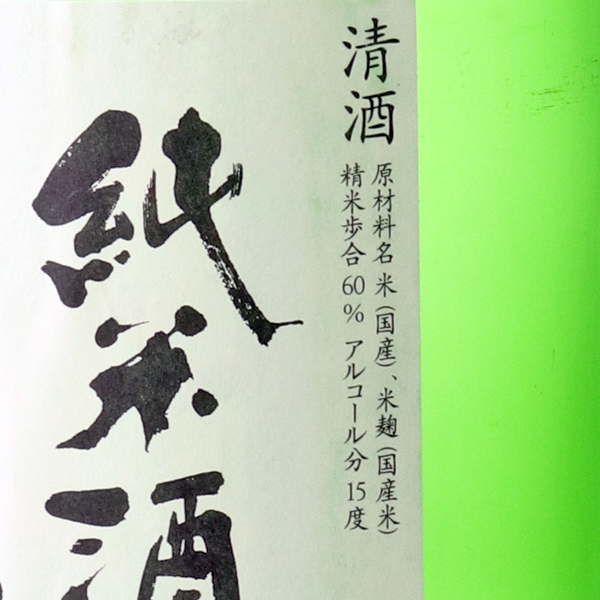 清酒
原材料名 米(国産)、米麹(国産米)
精米歩合60% アルコール分15度
純米酒